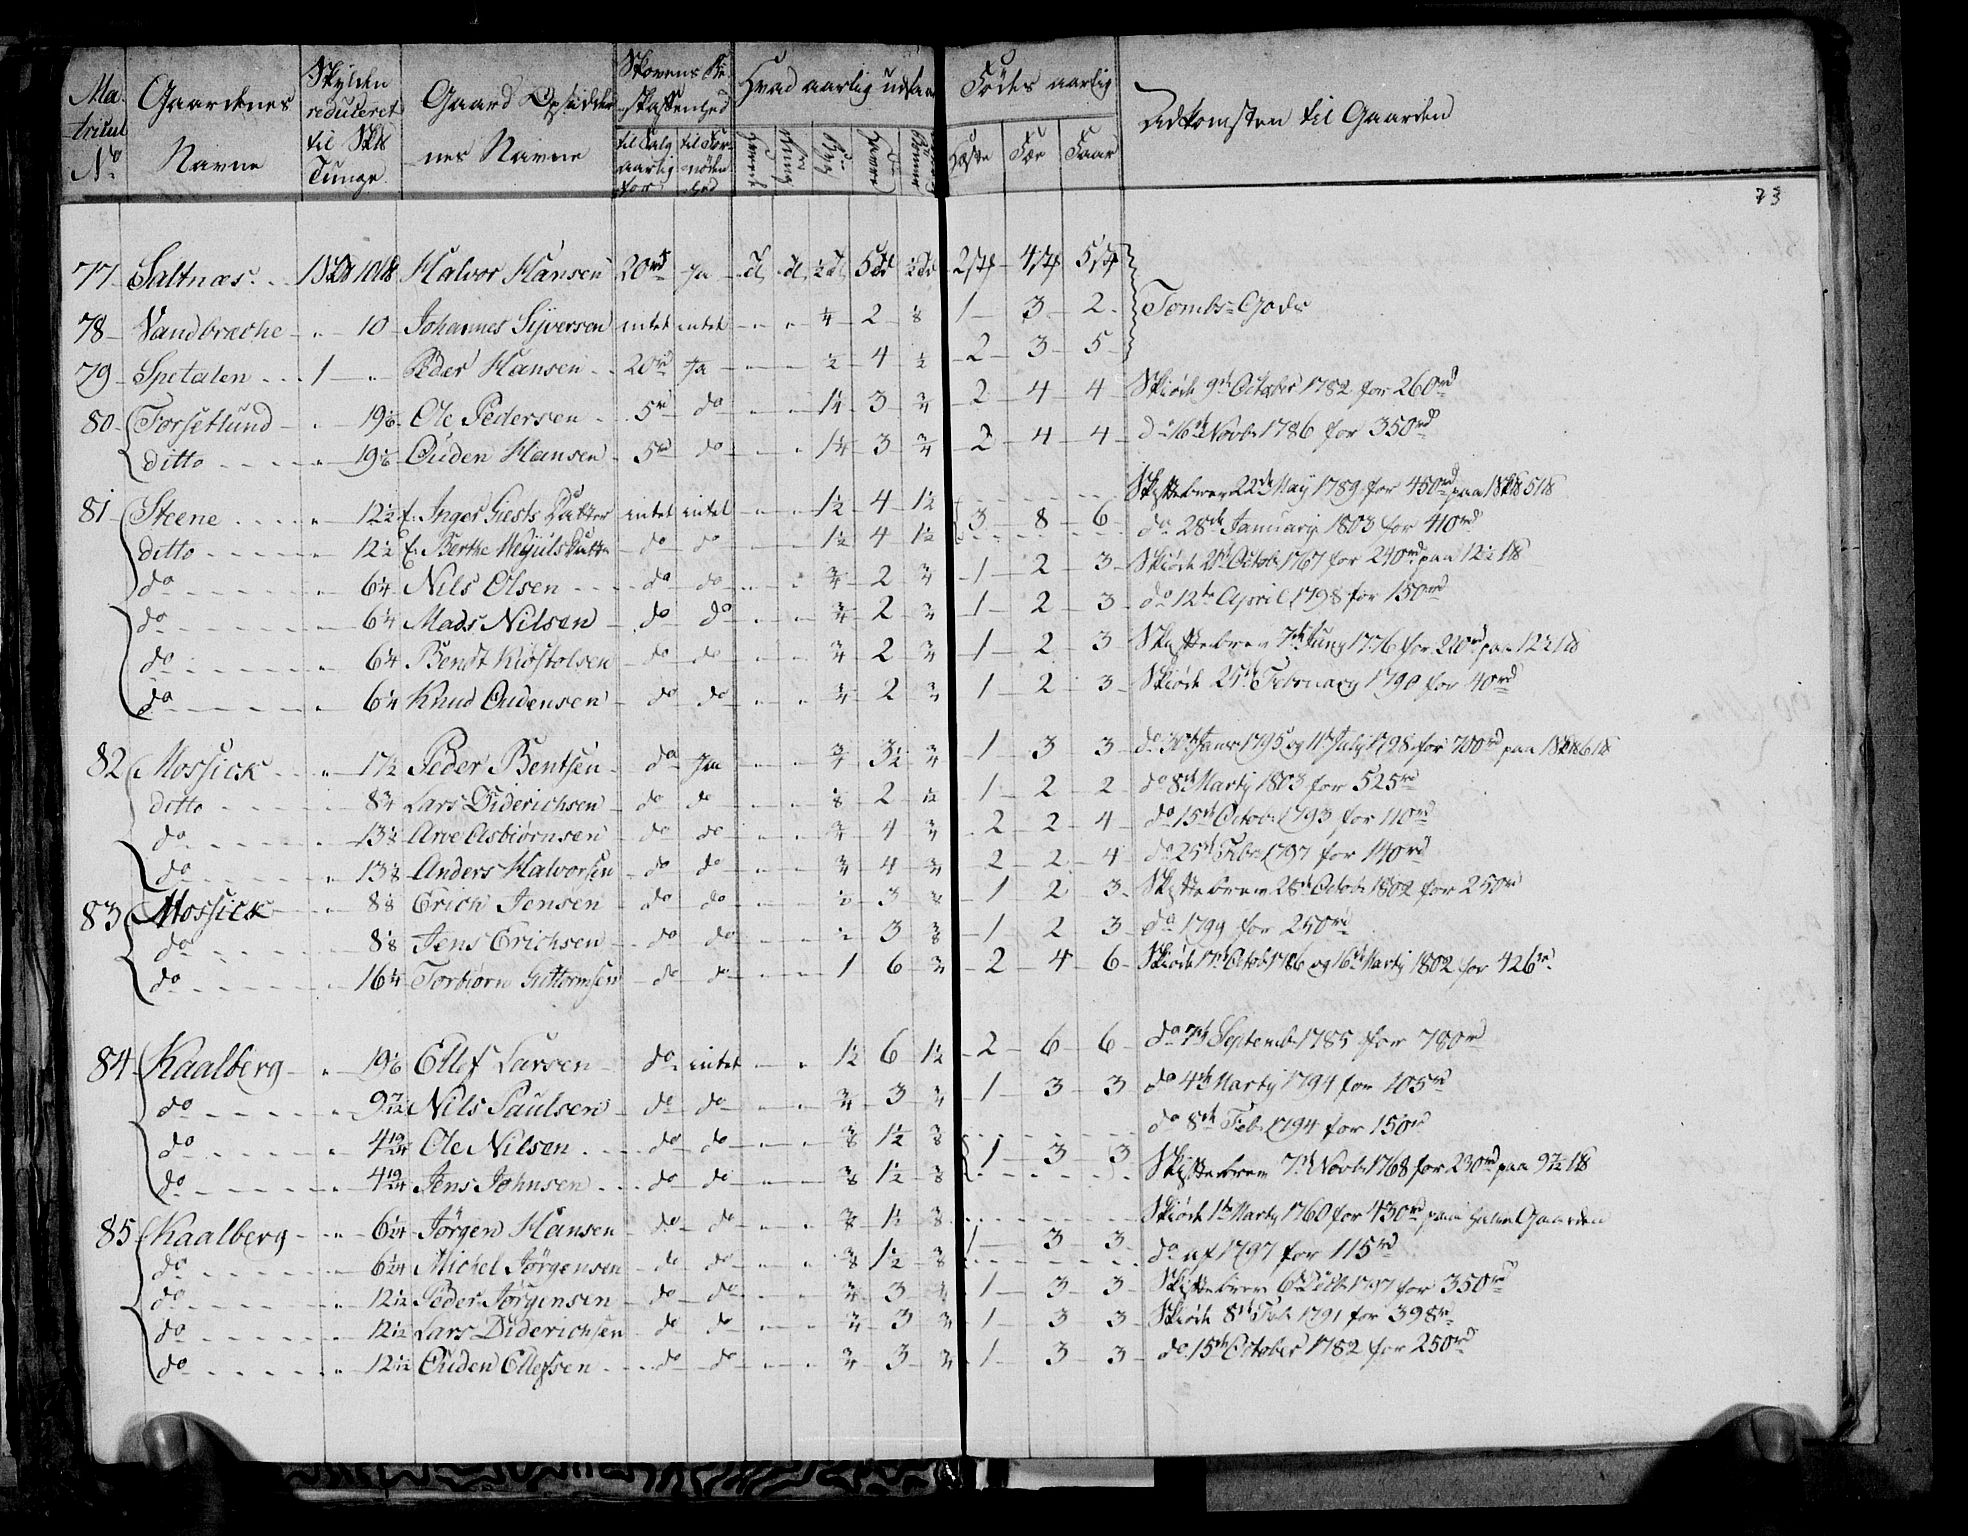 Ma- Gaardenes Skylden Gaard Opsidder Skovens Be- Hvad aarlig udsaaes Fødes aarlig Adkomsten til Gaarden
tricul reduceret skaffenhed
No Navne til Skd nes Navne til Salg til For- Hvede Rug Byg Havre Heste Fæe Faar
Tunge aarlig nøden
for hed
73
77 Saltnæs Halvor Hansen 20 rd Ja 5 2 4 5
78 Vandbræche 10 Johannes Sijversen intet intet ¼ 2 ⅛ 1 3 2 Tombs Gods
79 Spetalen 1 Peder Hansen 20 rd Ja ½ 4 ½ 2 3 5
80 Torsetlund 19⅙ Ole Pedersen 5 rd do 1¼ 3 ¾ 2 4 4 Skiøde 9de October 1782 for 260 rd
ditto 19⅙ Ouden Hansen 5 rd do 1¼ 3 ¾ 2 4 4 do 16de Novbr 1786 for 350 rd
81 Steene 12½ Inger Giests Datter intet intet 1½ 4 1½ Skiftebrev 22de Maij 1789 for 450 rd paa
ditto 12½ Berthe Datter do do 1½ 4 1½ 3 8 6 do 28de Januarij 1803 for 410 rd
do 6¼ Nils Olsen do do ¾ 2 ¾ 1 2 3 Skiøde October 1767 for 240 rd paa 12½
do 6¼ Mads Nilsen do do ¾ 2 ¾ 1 2 3 do 12te April 1798 for 150 rd
do 6¼ Bendt Kiøstolsen do do ¾ 2 ¾ 1 2 3 Skiftebrev 7de Junij 1776 for 220 rd paa 12½
do 6¼ Knud Oudensen do do ¾ 2 ¾ 1 2 3 Skiøde 25de Februarij 1790 for 40 rd
82 Mossick 17½ Peder Bentsen do Ja ¾ 3½ ¾ 1 3 3 do Janr 1795 og 11te Julij 1798 for 700 rd paa
ditto 8¾ Lars Diderichsen do do 2 1 2 2 do 8de Martij 1803 for 525 rd
do 13⅛ Arve Asbiørnsen do do ¾ 4 ¾ 2 2 4 do 15de Octobr 1793 for 110 rd
do 13⅛ Anders Halvorsen do do ¾ 4 ¾ 2 2 4 do 25de Febr 1797 for 140 rd
83 Mossick 8⅛ Erich Jensen do do ½ 3 ⅜ 1 2 3 Skiftebrev 28de Octobr 1802 for 250 rd
do 8⅛ Jens Erichsen do do ½ 3 ⅜ 1 2 3 do 1799 for 250 rd
do 16¼ Torbiørn Guttormsen do do 1 6 ¾ 2 4 6 Skiøde Octobr 1786 og 16de Martij 1802 for 426 rd
84 Kaalberg 19⅙ Ellef Larsen do intet 1½ 6 1½ 2 6 6 do 7de Septembr 1785 for 780 rd
do 9 7/12 Nils Paulsen do do ¾ 3 ¾ 1 3 3 do 4de Martij 1794 for 105 rd
do 4 19/24 Ole Nilsen do do ⅜ 1½ ⅜ do 8de Febr 1794 for 150 rd
do 4 19/24 Jens Johnsen do do ⅜ 1½ ⅜ 1 3 3 Skiftebrev 7de Novbr 1768 for 230 rd paa 9 7/12
85 Kaalberg 6 1/24 Jørgen Hansen do do ⅜ 1½ ⅜ Skiøde 1te Martij 1760 for 430 rd paa halve Gaarden
do 6 1/24 Michel Jørgensen do do ⅜ 1½ ⅜ 1 3 3 do af 1797 for 115 rd
do 12 1/12 Peder Jørgensen do do ¾ 3 ¾ 1 3 3 Skiftebrev 6te 1797 for 350 rd
do 12 1/12 Lars Diderichsen do do ¾ 3 ¾ 1 3 3 Skiøde 8de Feb 1791 for 398 rd
do 12 1/12 Ouden Ellefsen do do ¾ 3 ¾ 1 3 3 do 15de October 1782 for 250 rd